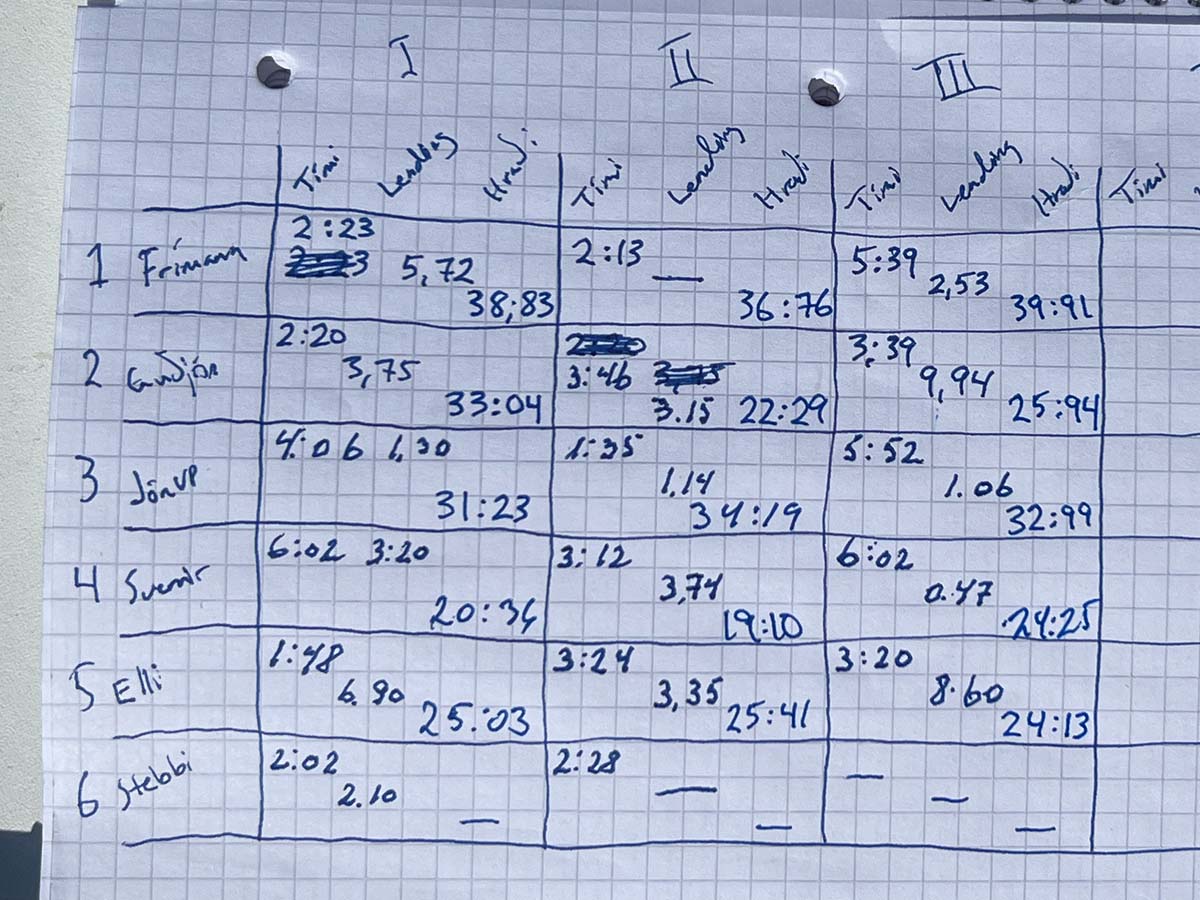 I II III
Tími Lending Hraði Tími Lending Hraði Tími Lending Hraði Tími
1 Frímann 2:23 5,72 38;83 2:13 — 36:76 5:39 2,53 39:91
2 Guðjón 2:20 3,75 33:04 3:46 3.15 22:29 3,39 9,94 25:94
3 Jón VP 4:06 1,30 31:23 1:35 1.14 34:19 5:52 1.06 32:99
4 Sverrir 6:02 3:20 20:34 3:12 3,74 19:10 6:02 0.47 24:25
5 Elli 1:48 6.90 25:03 3:24 3,35 25:41 3:20 8.60 24:13
6 Stebbi 2:02 2.10 — 2:28 — — — — —